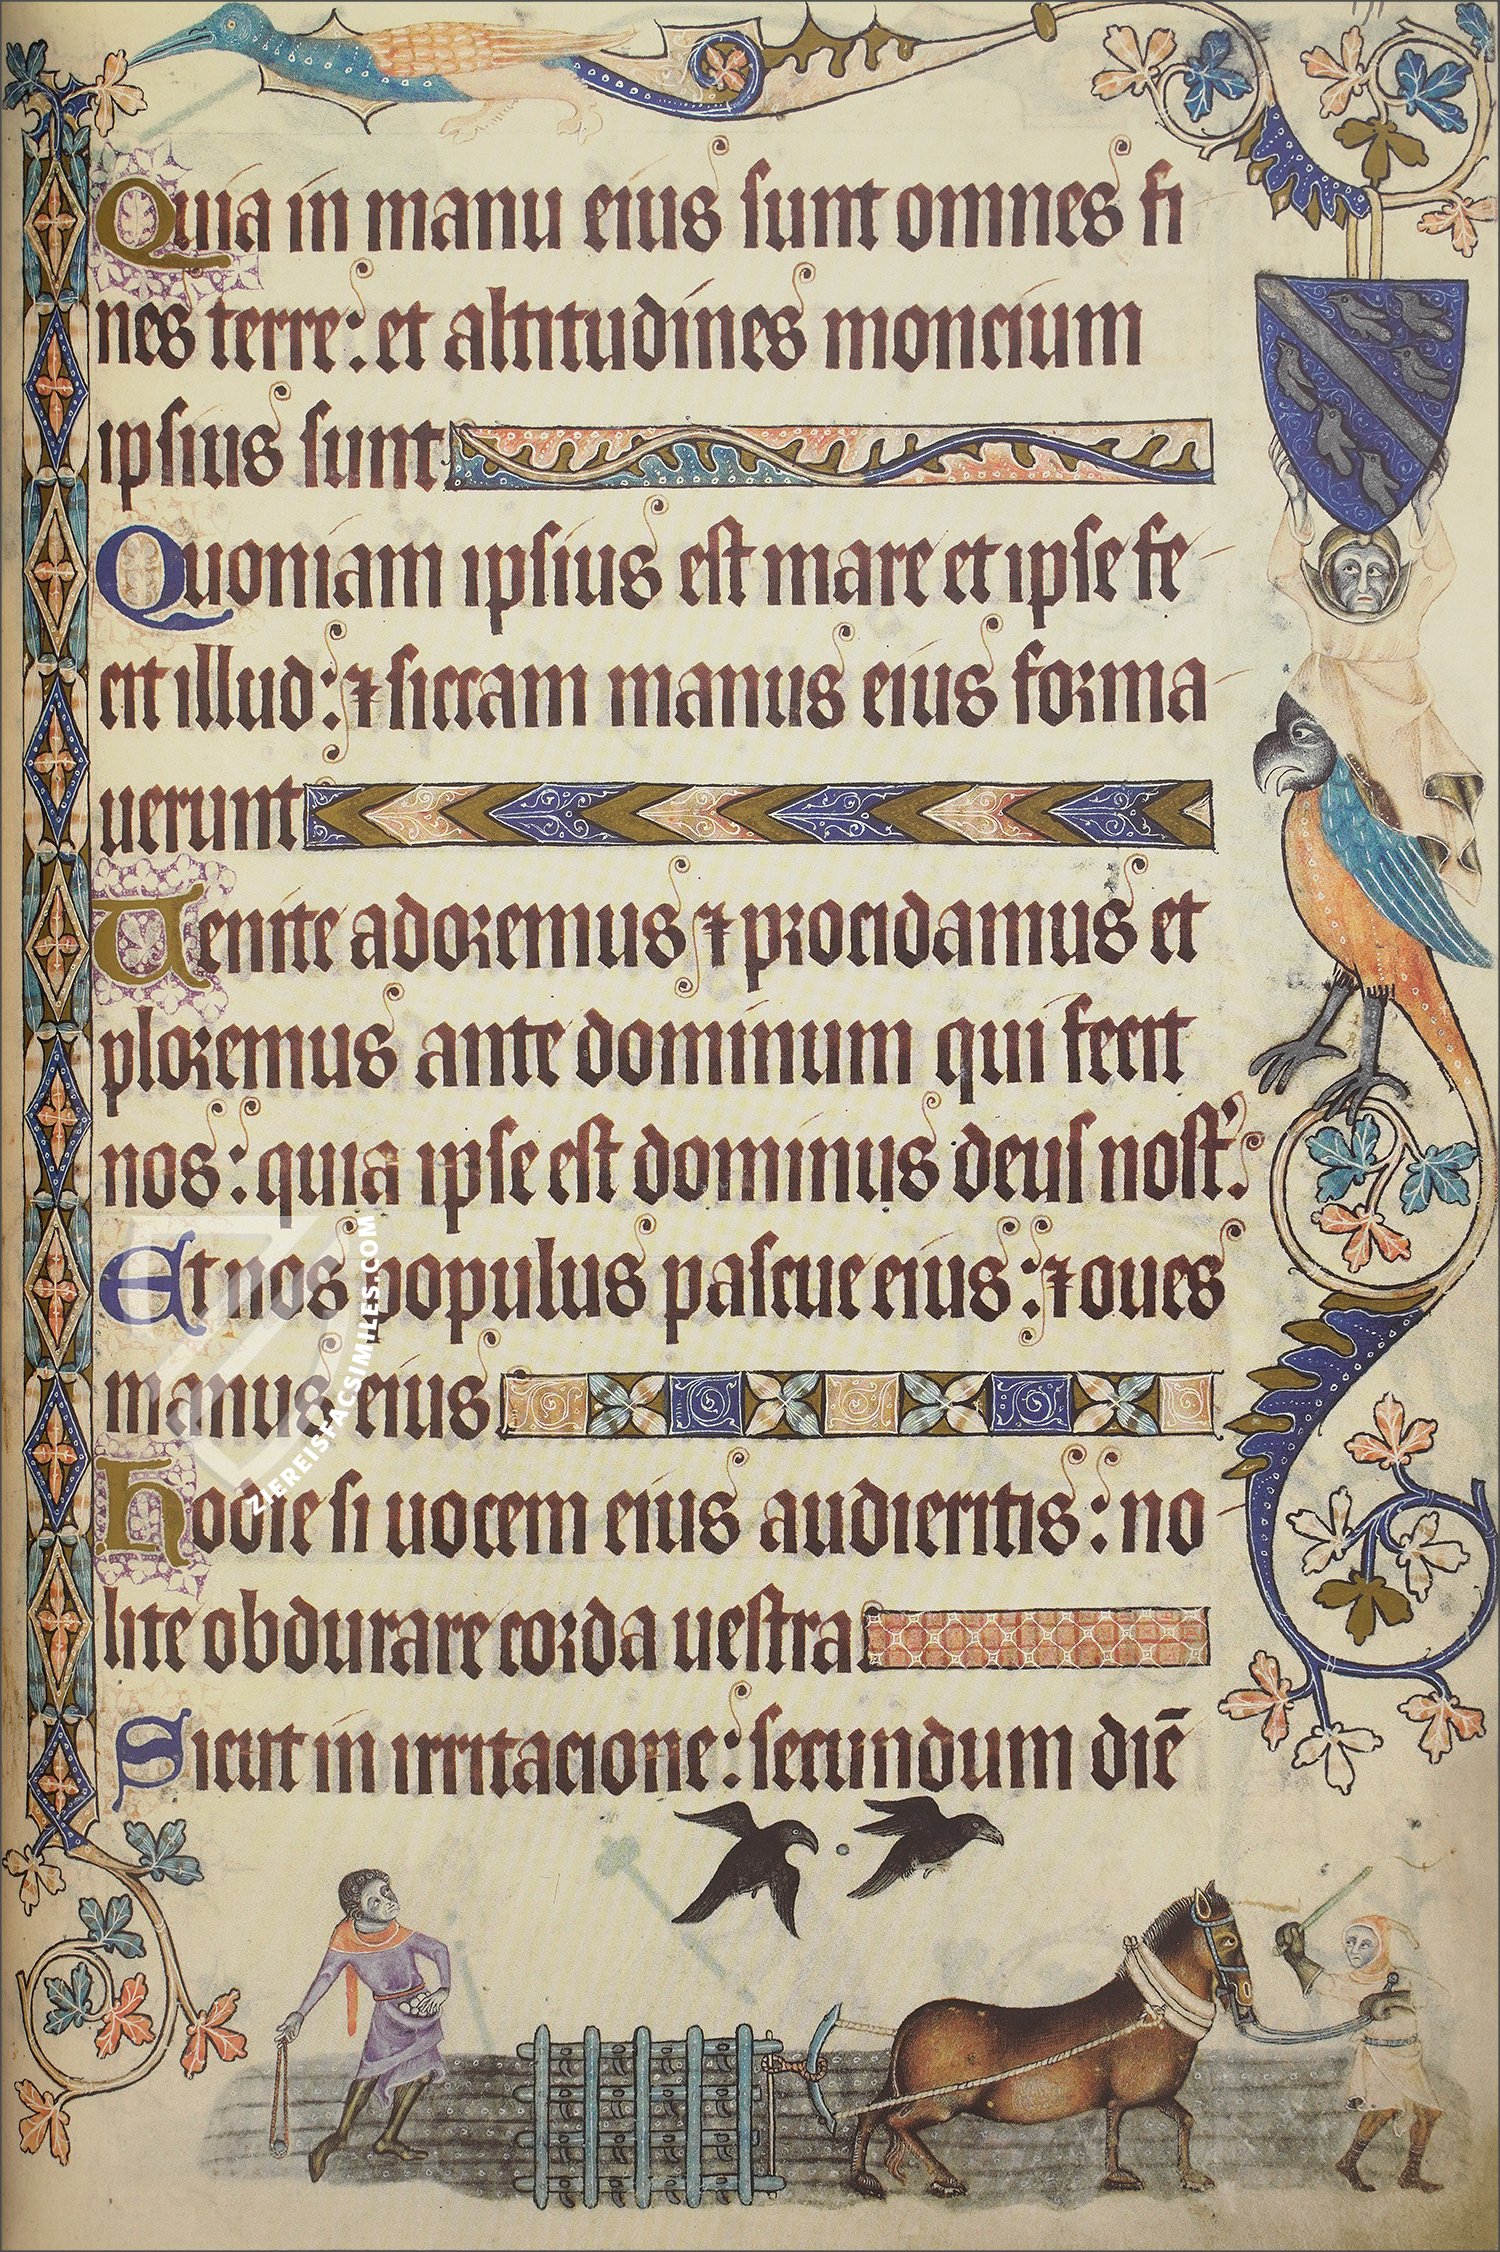 Quia in manu eius sunt omnes fi
nes terre: et altitudines moncium
ipsius sunt
Quoniam ipsius est mare et ipse fe
cit illud: ⁊ siccam manus eius forma
uerunt
Uenite adoremus ⁊ procidamus et
ploremus ante dominum qui fecit
nos: quia ipse est dominus deus nost'.
Et nos populus pascue eius: ⁊ oues
manus eius
Hodie si uocem eius audieritis: no
lite obdurare corda uestra.
Sicut in irritacione: secundum diē
ZIEREISFACSIMILES.COM